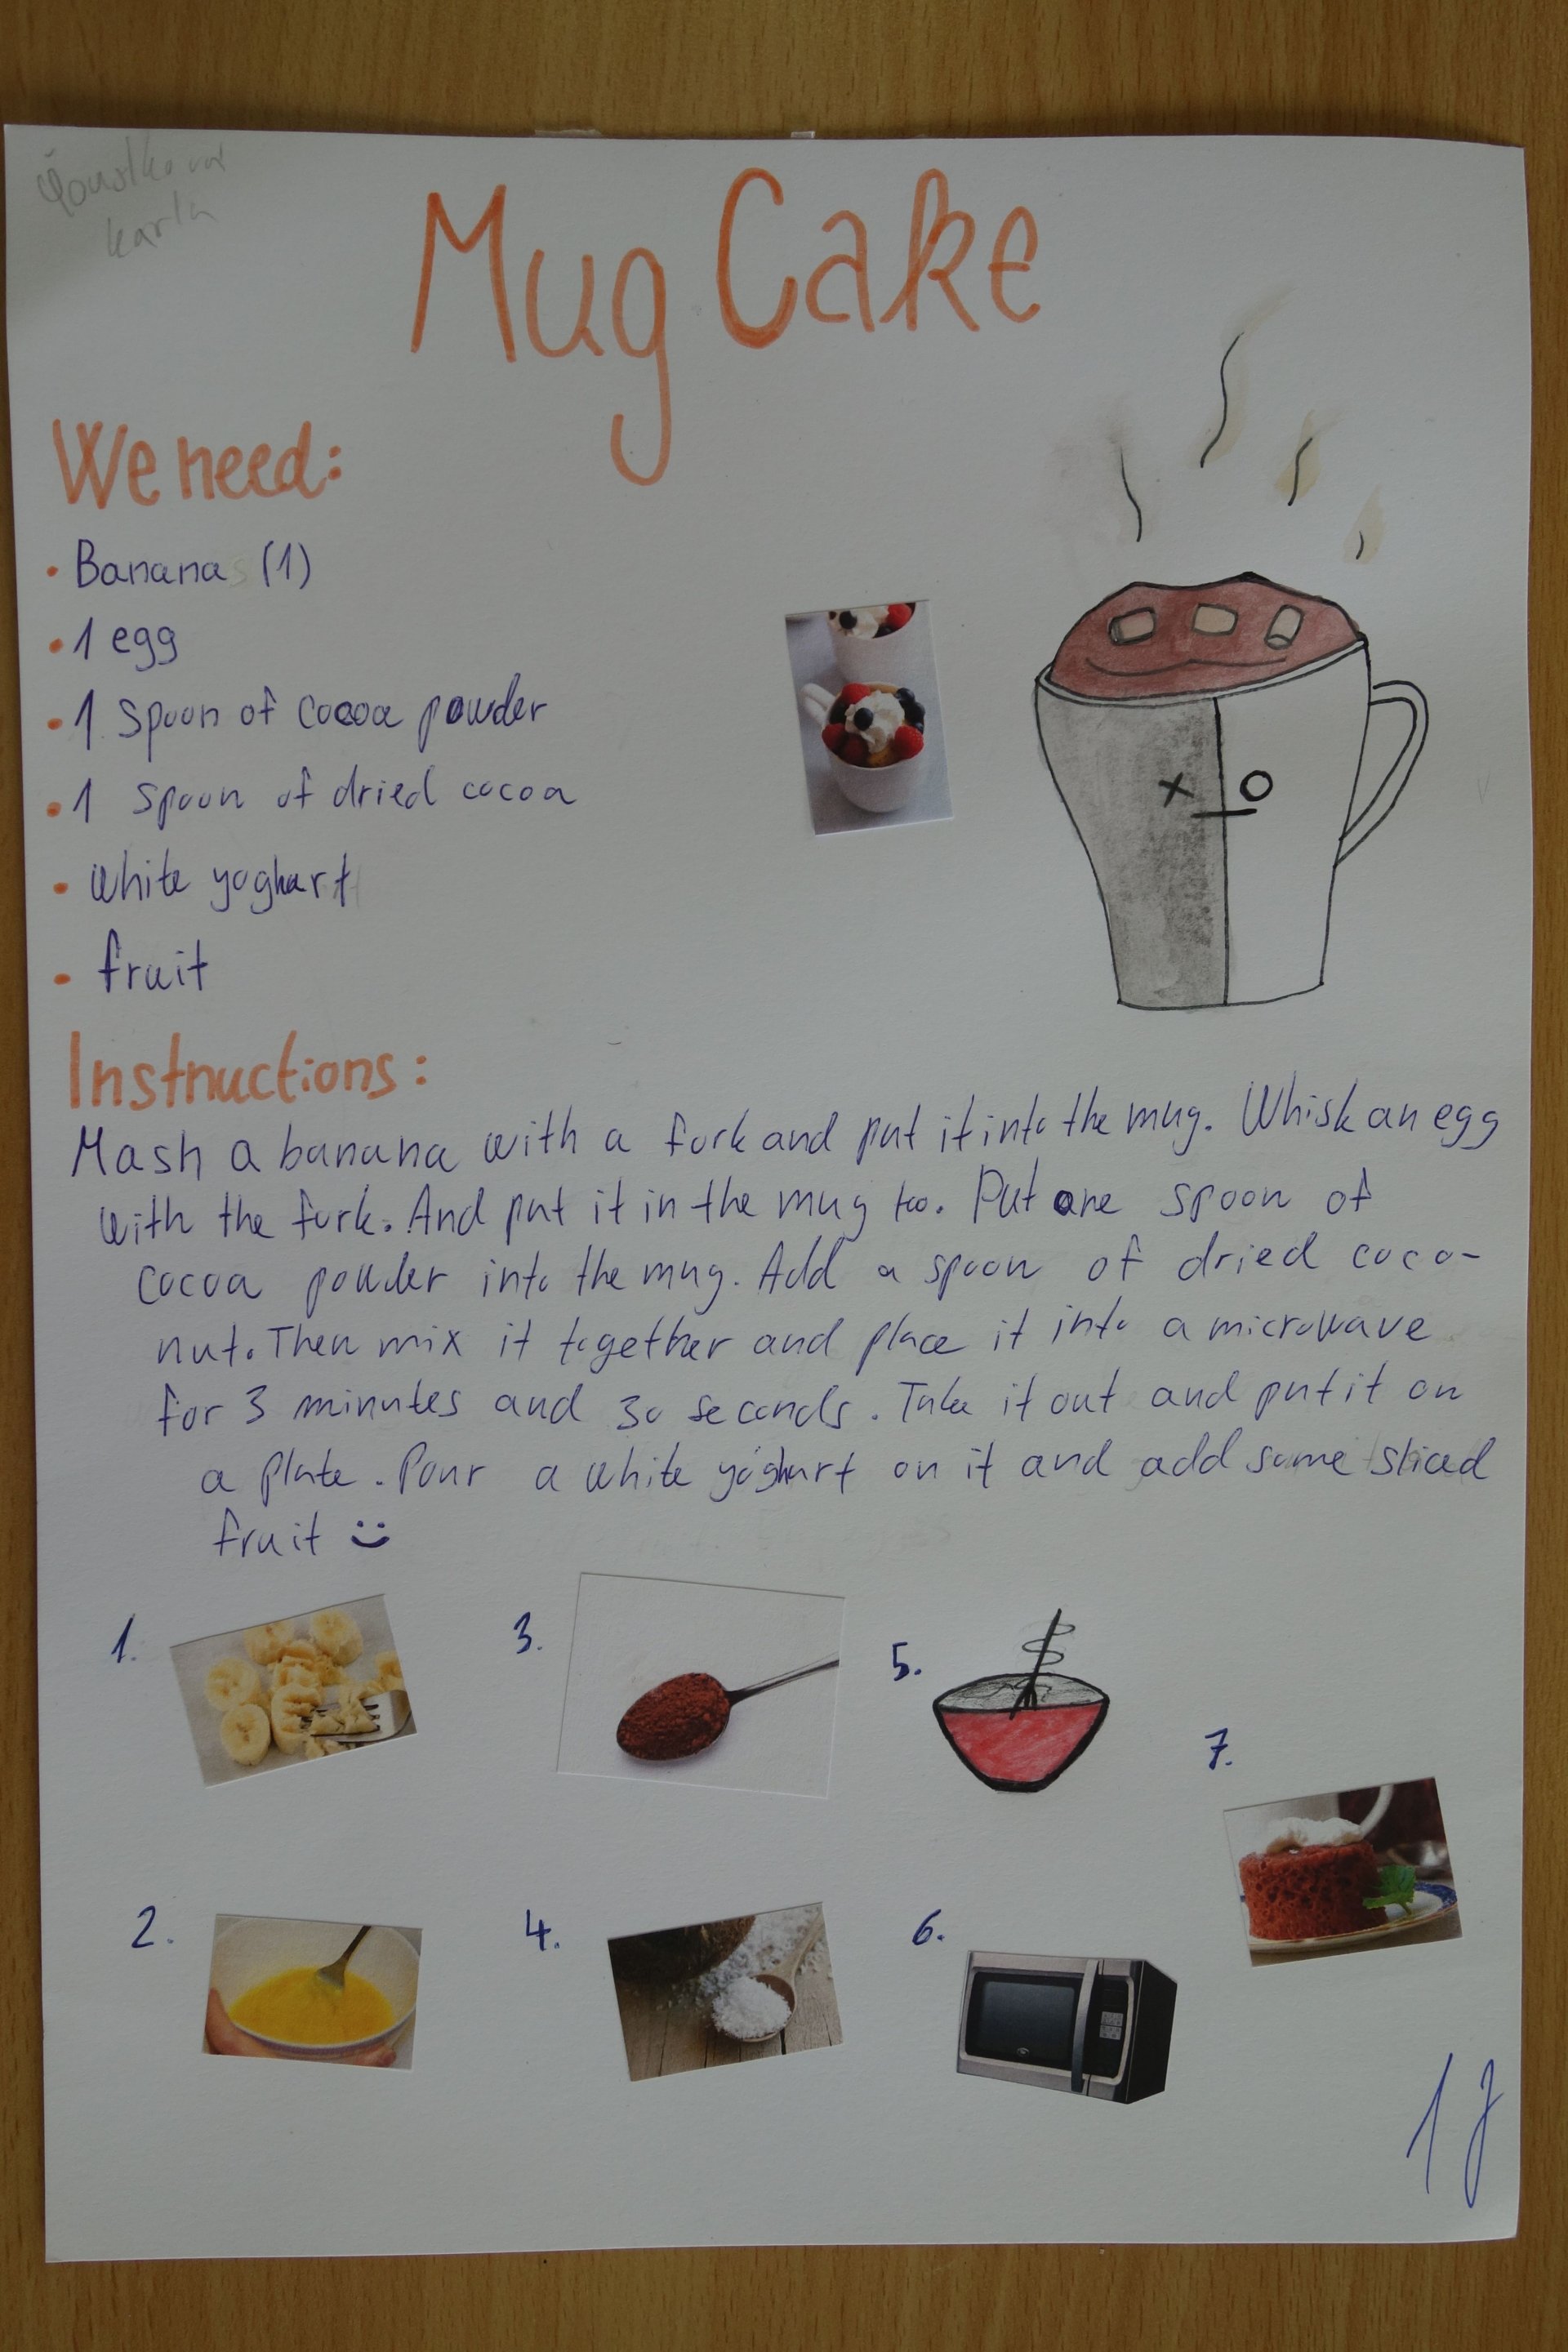 Karla
Mug Cake
We need:
• Banana (1)
• 1 egg
• 1 spoon of cocoa powder
• 1 spoon of dried cocoa
• white yoghurt
• fruit
Instructions:
Mash a banana with a fork and put it into the mug. Whisk an egg
with the fork. And put it in the mug too. Put one spoon of
cocoa powder into the mug. Add a spoon of dried coco-
nut. Then mix it together and place it into a microwave
for 3 minutes and 30 seconds. Take it out and put it on
a plate. Pour a white yoghurt on it and add some sliced
fruit :)
1.
3.
5.
7.
2.
4.
6.